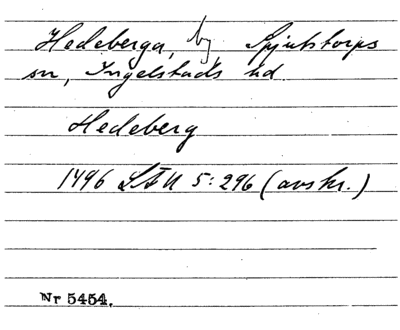 Hedeberga, by, Spjutstorps
sn, Ingelstads hd
Hedeberg
1496 LÅU 5:296 (avskr.)
Nr 5454.